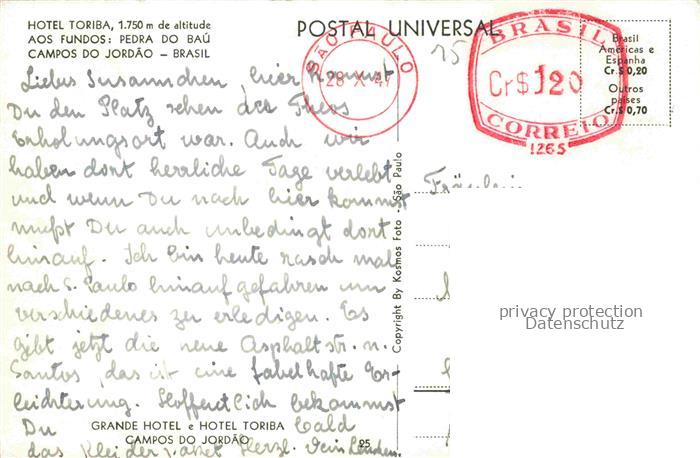 HOTEL TORIBA, 1.750 m de altitude
AOS FUNDOS: PEDRA DO BAÚ
CAMPOS DO JORDÃO – BRASIL
POSTAL UNIVERSAL
15
SÃO PAULO
28 X 47
BRASIL
Cr$ 120
CORREIO
1265
Brasil
Américas e
Espanha
Cr.$ 0,20
Outros
países
Cr.$ 0,70
Liebes Susannchen, hier kannst
Du den Platz sehen der Theos
Erholungsort war. Auch wir
haben dort herrliche Tage verlebt
und wenn Du nach hier kommst
mußt Du auch unbedingt dort
hinauf. Ich bin heute rasch mal
nach S. Paulo hinauf gefahren um
verschiedenes zu erledigen. Es
gibt jetzt die neue Asphaltstr. n.
Santos, das ist eine fabelhafte Er-
leichterung. Hoffentlich bekommst
Du bald
das Kleiderpaket Herzl.
GRANDE HOTEL e HOTEL TORIBA
CAMPOS DO JORDÃO
25
Copyright By Kosmos Foto - São Paulo
Fräulein
privacy protection
Datenschutz